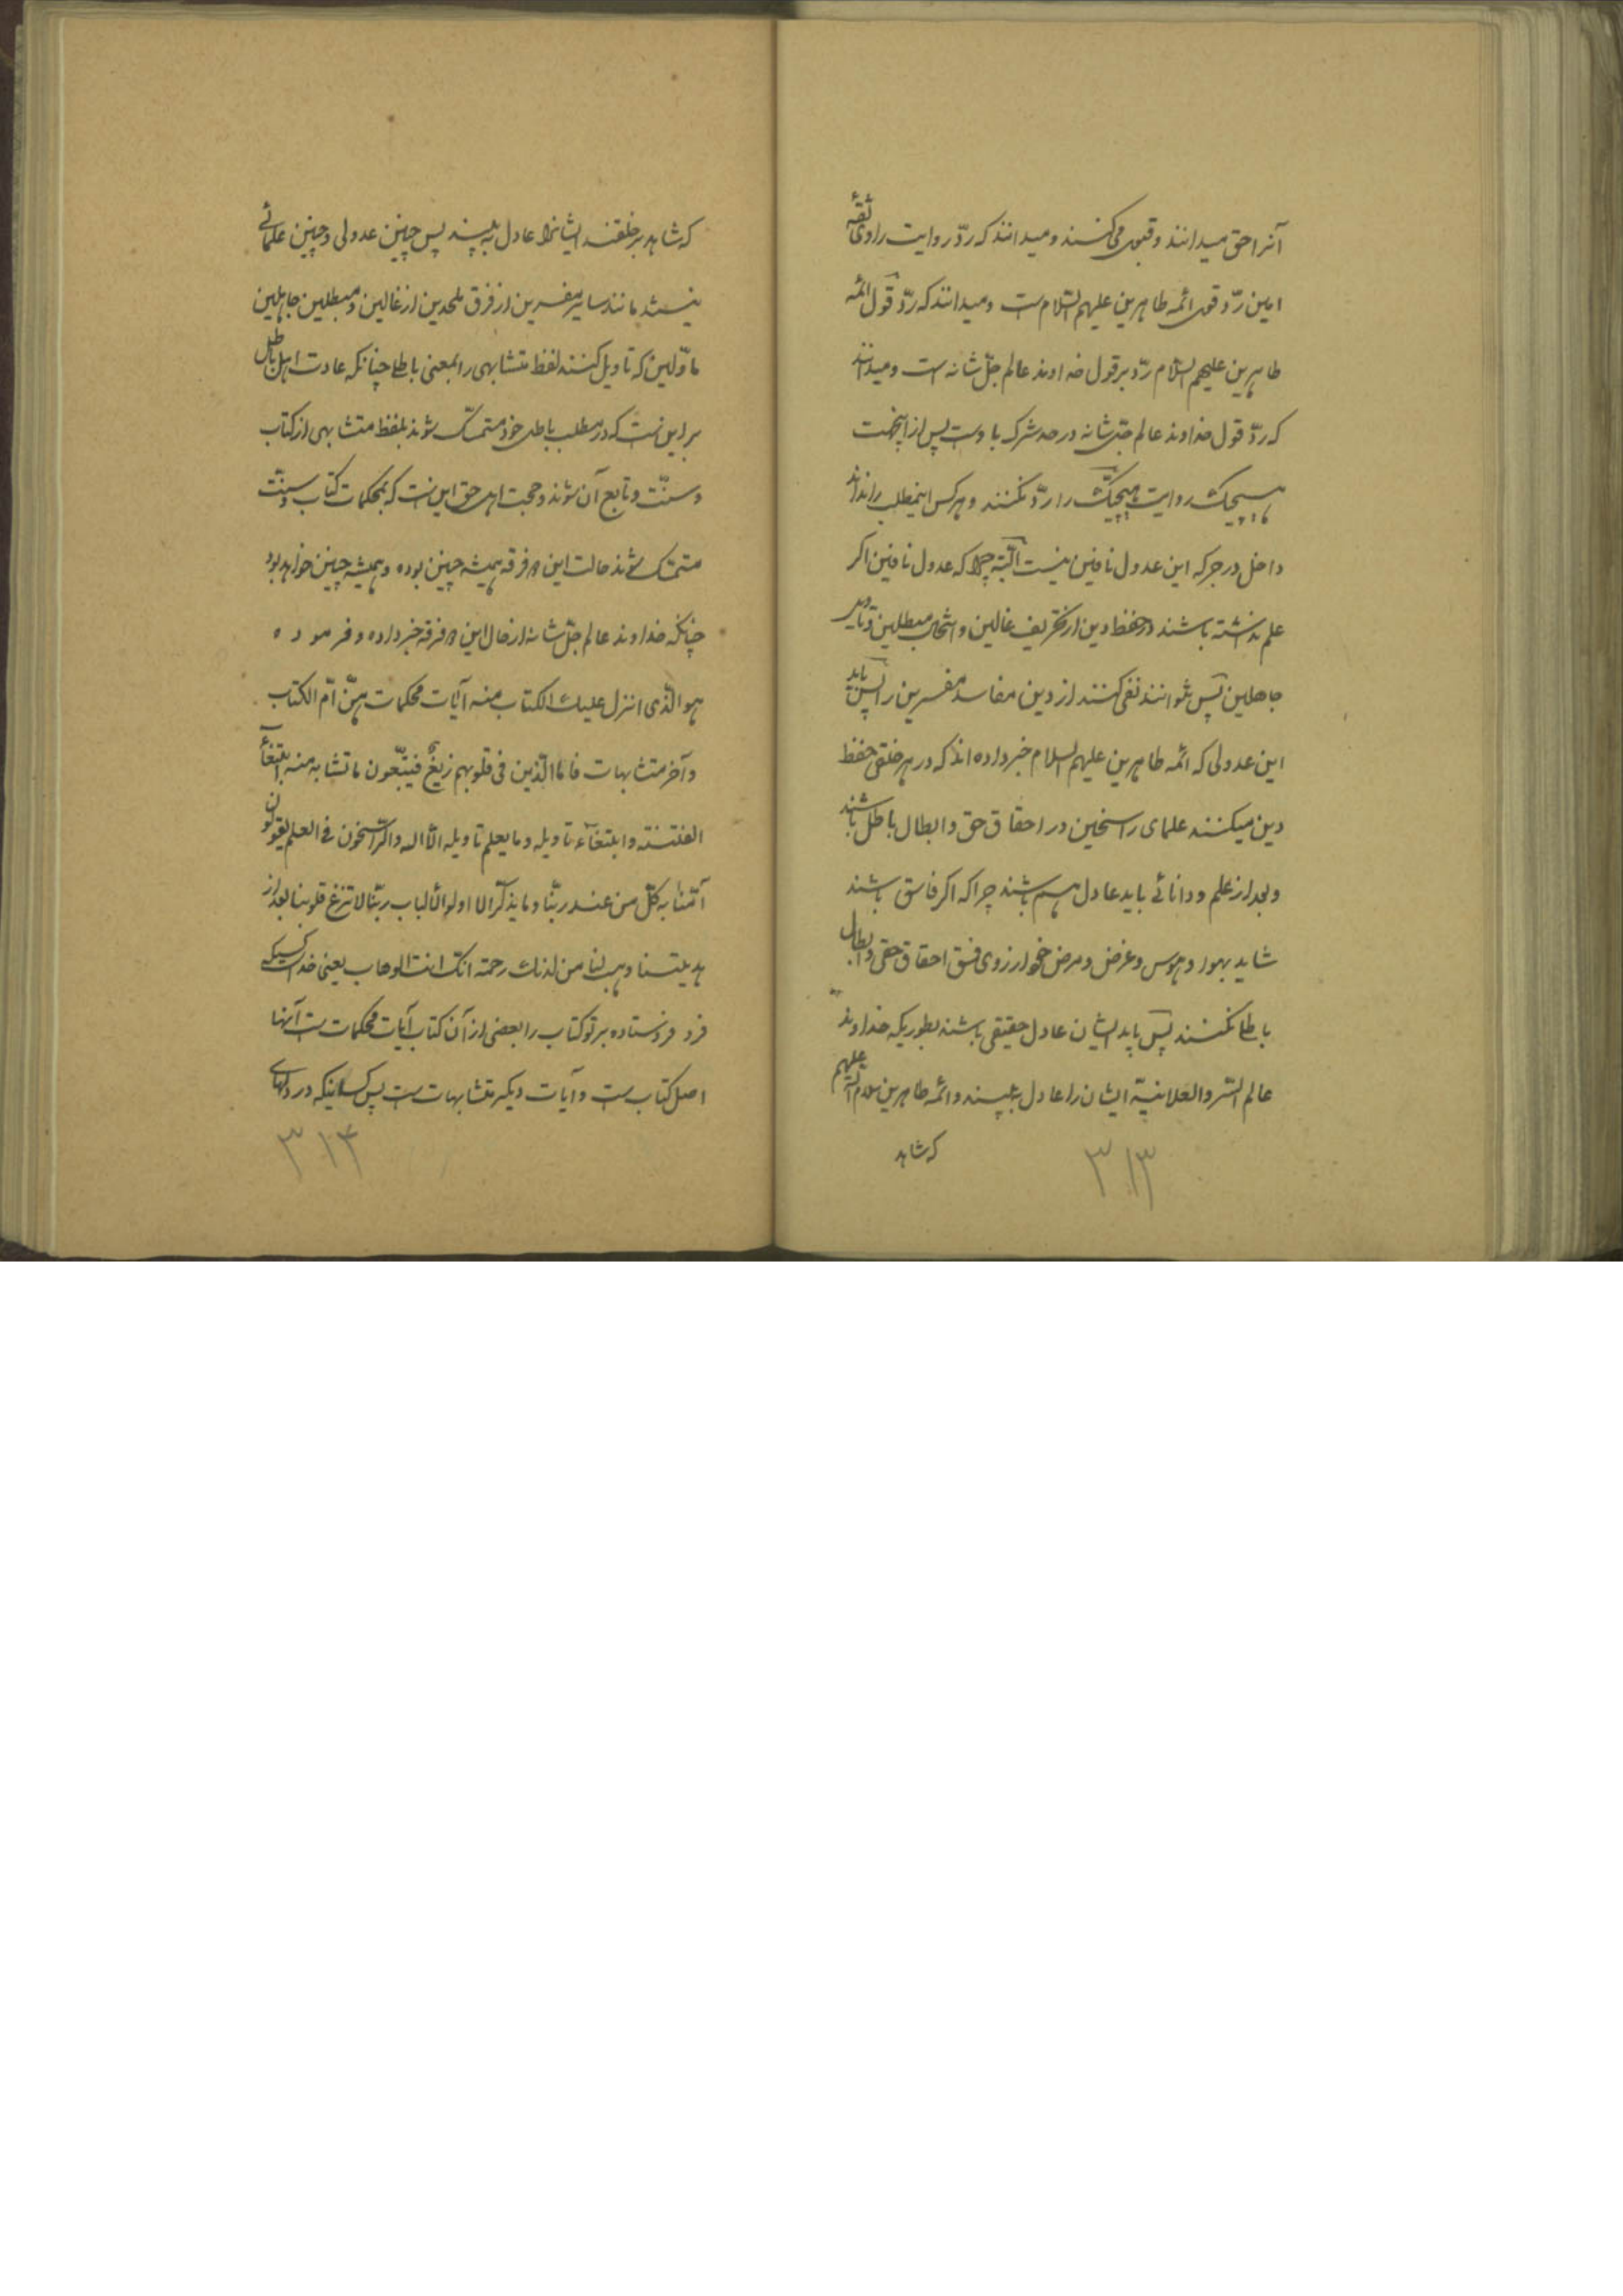 آنرا حق میدانند و قبول می‌کنند و میدانند که ردّ روایت راوی ثقهٔ
امین ردّ قول ائمه طاهرین علیهم السّلام است و میدانند که ردّ قول ائمه
طاهرین علیهم السّلام ردّ بر قول خداوند عالم جلّ شانه است و میدانند
که ردّ قول خداوند عالم جلّ شانه در حد شرک باوست پس از اینجهت
هیچیک روایت هیچیک را ردّ نکنند و هرکس اینمطلب را نداند
داخل در جرکه این عدول نافین نیست البتّه چرا که عدول نافین اکر
علم نداشته باشند در حفظ دین از تحریف غالین و انتحال مبطلین و تاویل
جاهلین پس نتوانند نفی کنند از دین مفاسد مفسرین را پس باید
این عدولی که ائمه طاهرین علیهم السلام خبر داده‌اند که در هر خلقی حفظ
دین میکنند علمای راسخین در احقاق حق و ابطال باطل باشند
و بعد از علم و دانائی باید عادل هم باشند چرا که اکر فاسق باشند
شاید بهوا و هوس و غرض و مرض خود از روی فسق احقاق حقی و ابطال
باطلی نکنند پس باید ایشان عادل حقیقی باشند بطوریکه خداوند
عالم السّر والعلانیّة ایشان را عادل به‌بیند و ائمه طاهرین سلام الله علیهم
که شاهد
۳۱۳
که شاهد بر خلقند ایشانرا عادل به‌بینند پس چنین عدولی و چنین علمائی
نیستند مانند سایر مفسرین از فرق ملحدین از غالین و مبطلین جاهلین
مأوّلین که تاویل کنند لفظ متشابهی را بمعنی باطلی چنانکه عادت اهل باطل
بر این است که در مطلب باطل خود متمسّک شوند بلفظ متشابهی از کتاب
و سنّت و تابع آن شوند و حجت اهل حق این است که بمحکمات کتاب و سنت
متمسّک شوند حالت این ۲ فرقه همیشه چنین بوده و همیشه چنین خواهد بود
چنانکه خداوند عالم جلّ شانه از حال این ۲ فرقه خبر داده و فرموده
هو الّذی انزل علیک الکتاب منه آیات محکمات هنّ امّ الکتاب
و آخر متشابهات فامّا الّذین فی قلوبهم زیغٌ فیتّبعون ما تشابه منه ابتغآء
الفتنة و ابتغآء تاویله و ما یعلم تاویله الّا الله و الرّاسخون فی العلم یقولون
آمنّا به کلّ من عند ربّنا و ما یذکّر الا اولوا الألباب ربّنا لا تزغ قلوبنا بعد اذ
هدیتنا و هب لنا من لدنک رحمة انک انت الوهاب یعنی خداست کسیکه
فرو فرستاده بر تو کتاب را بعضی از آن کتاب آیات محکمات است آنها
اصل کتاب است و آیات دیکر متشابهات است پس کسانیکه در دلهای
۳۱۴